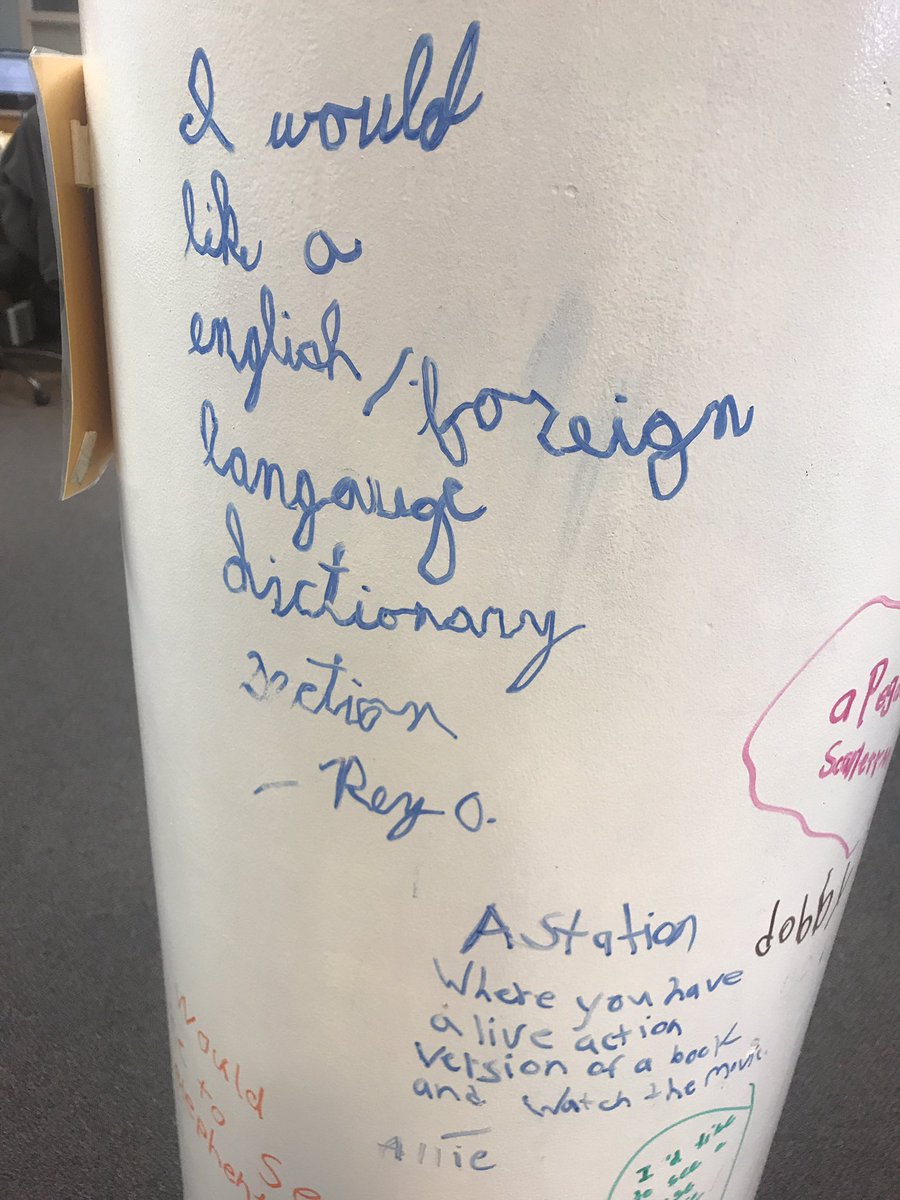 I would
like a
english / foreign
langauge
disctionary
section
- Rey O.
a
dobby
A Station
Where you have
a live action
version of a book
and watch the movie.
Allie
would
to
I'd like
to see
a